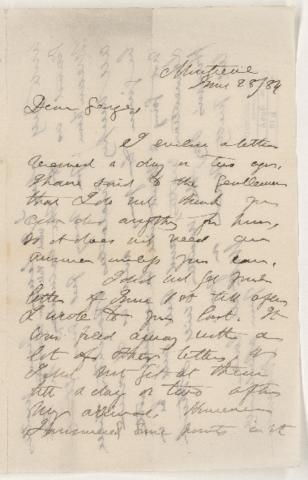 Montreal
June 28/84
Dear George,
I enclose a letter
received a day or two ago.
I have said to the gentleman
that I do not think you
can do anything for him,
so it does not need an
answer unless you can.
I did not get your
letter of June 1 till after
I wrote to you last. It
was filed away with a
lot of other letters, &
I did not get at them
till a day or two after
my arrival. However
I answered some points in it